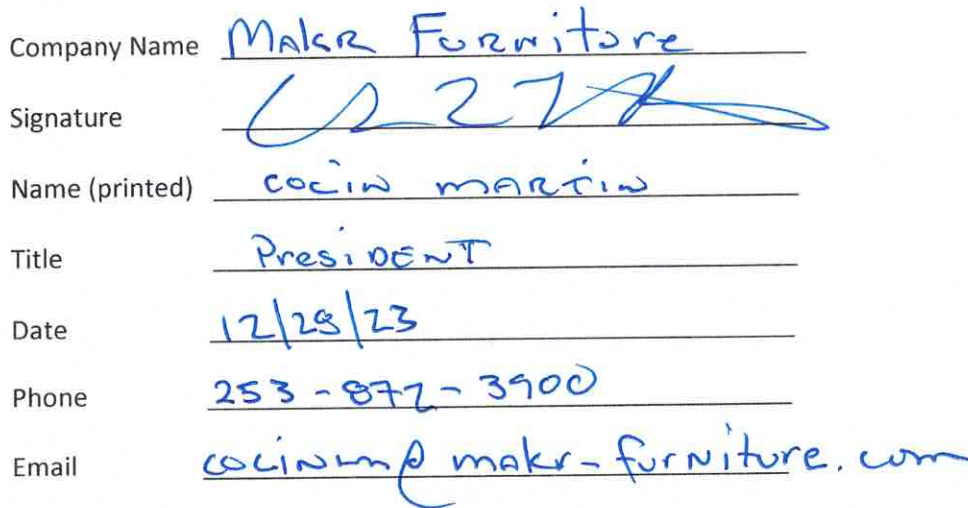 Company Name Makr Furniture
Signature
Name (printed) COLIN MARTIN
Title PresiDENT
Date 12/28/23
Phone 253-872-3900
Email colinm@makr-furniture.com